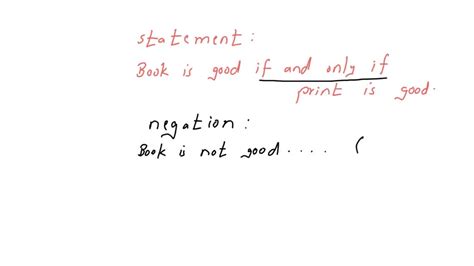 statement:
Book is good if and only if
print is good.
negation:
Book is not good.... (